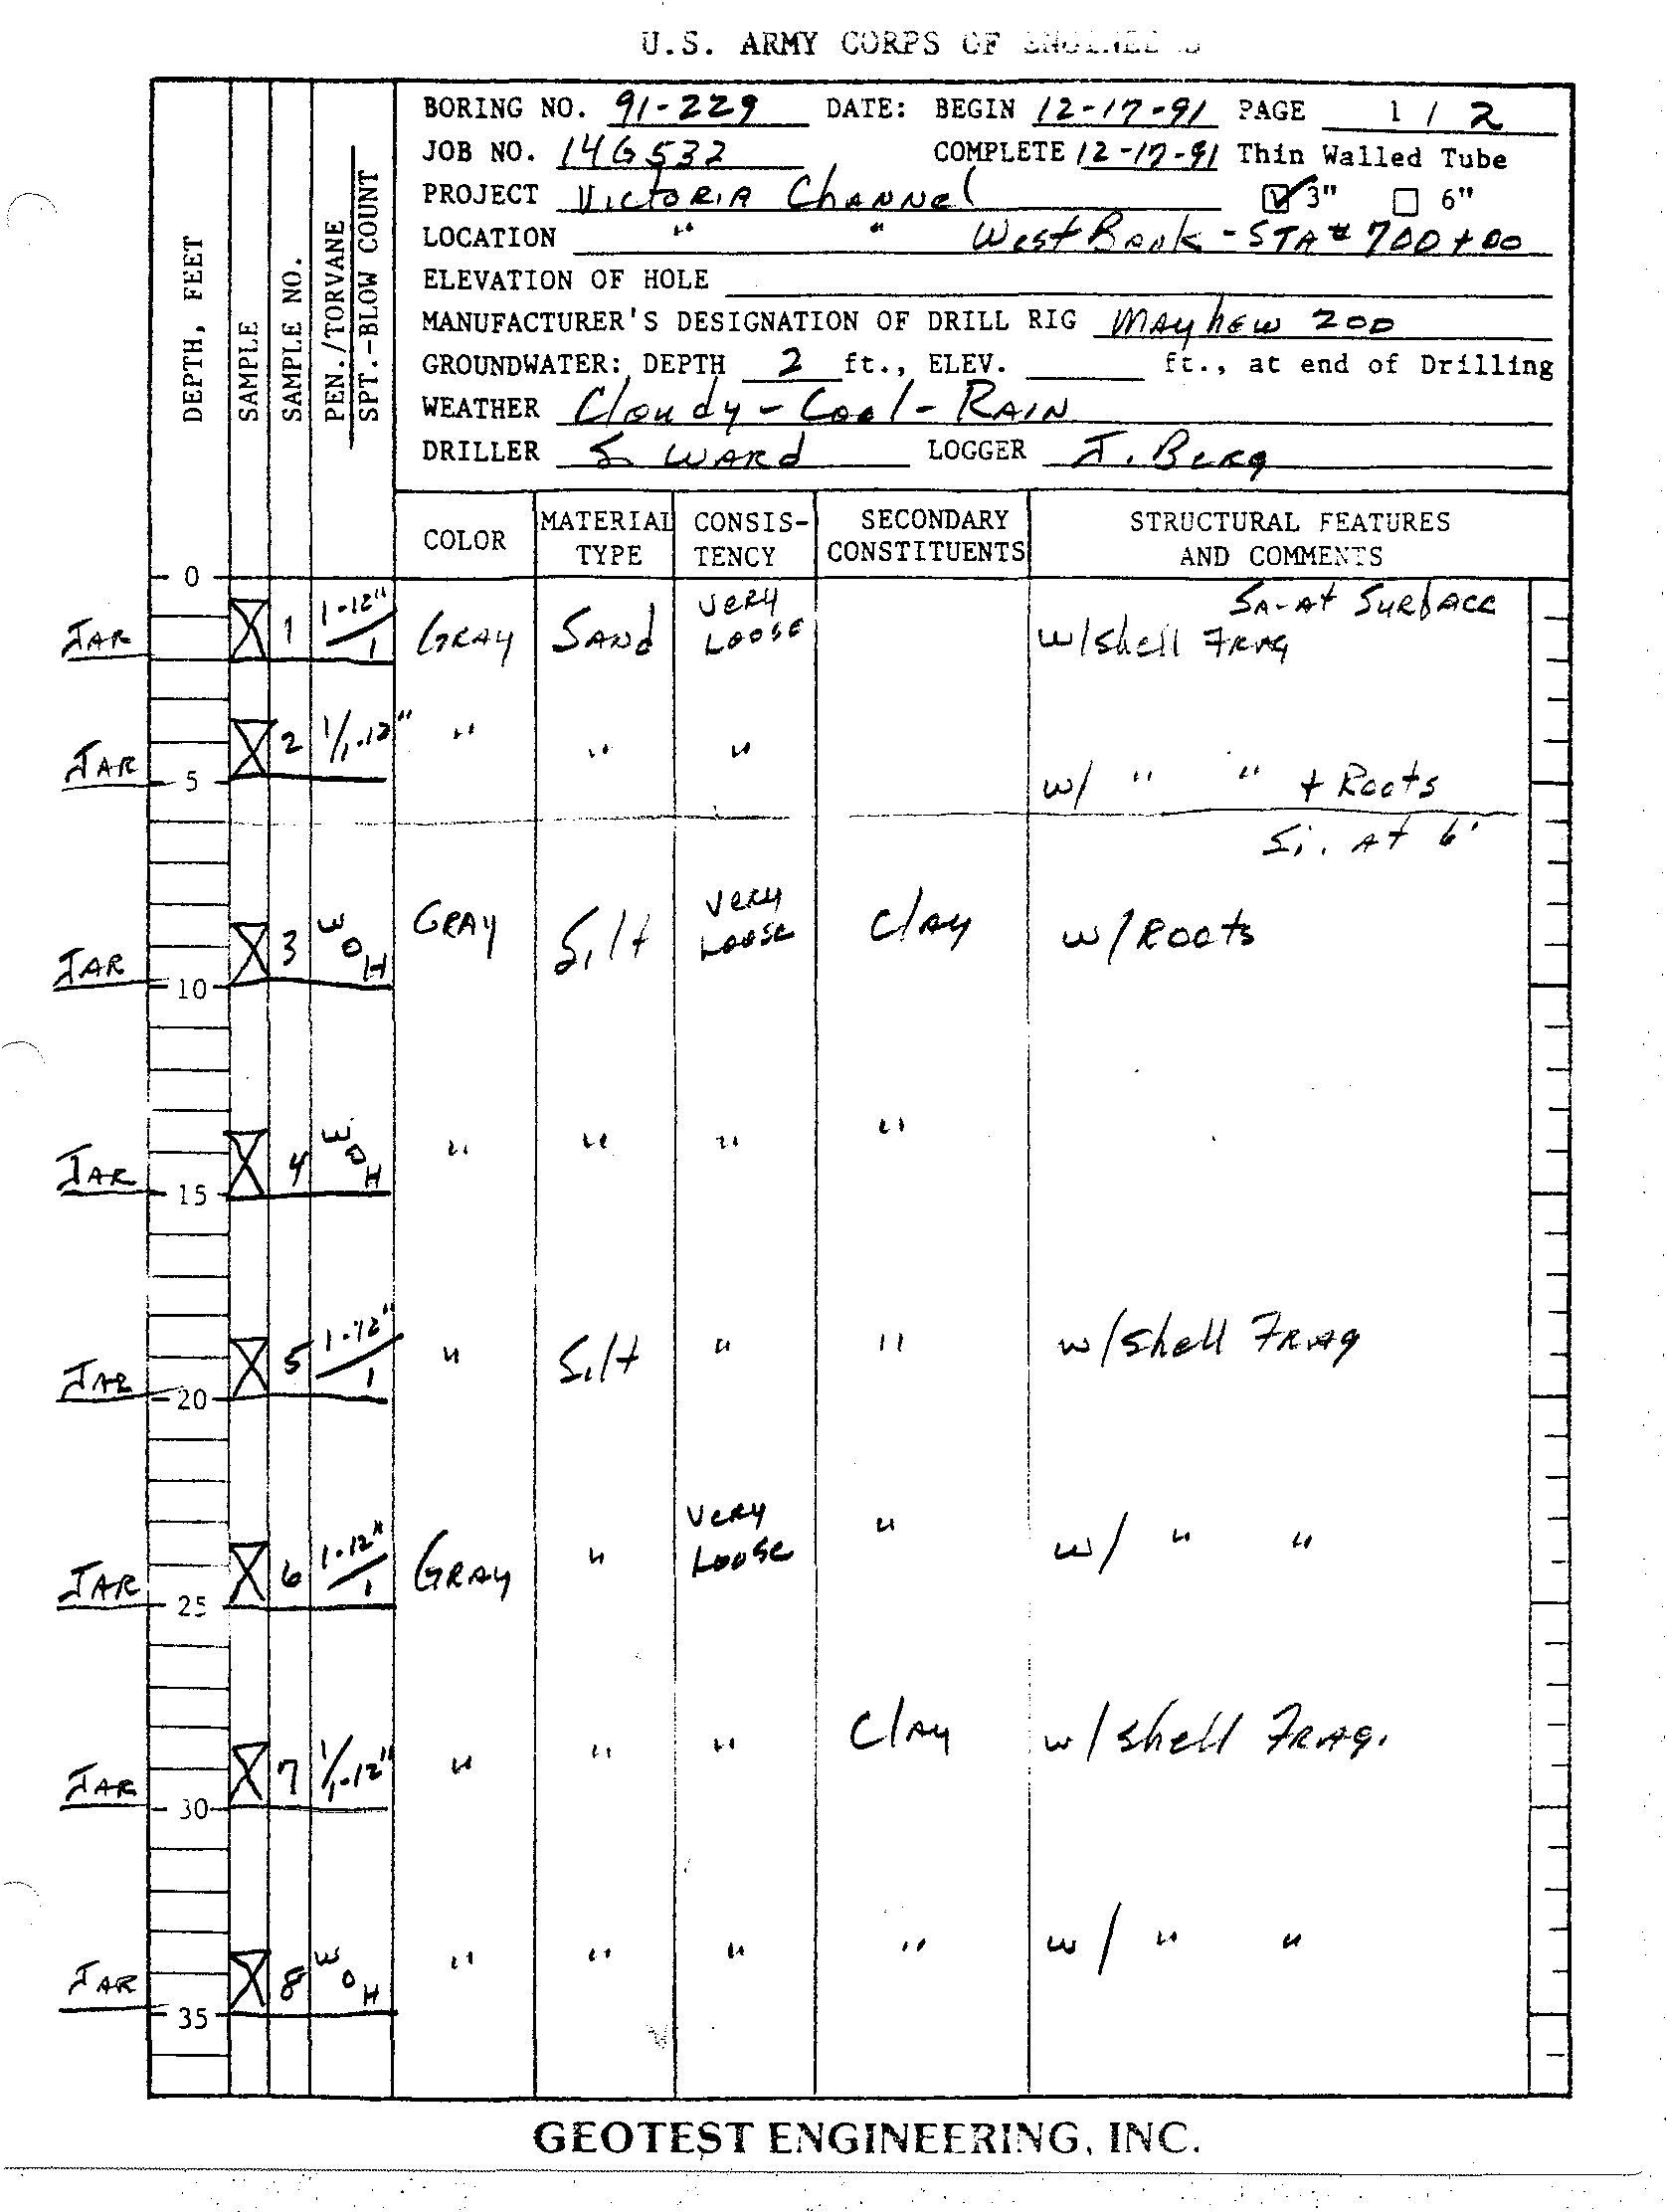 U.S. ARMY CORPS OF ENGINEERS
BORING NO. 91-229 DATE: BEGIN 12-17-91 PAGE 1 / 2
JOB NO. 14G532 COMPLETE 12-17-91 Thin Walled Tube
PROJECT Victoria Channel ☑ 3" ☐ 6"
LOCATION " " West Bank - STA # 700+00
ELEVATION OF HOLE
MANUFACTURER'S DESIGNATION OF DRILL RIG Mayhew 200
GROUNDWATER: DEPTH 2 ft., ELEV. ft., at end of Drilling
WEATHER Cloudy - Cool - RAIN
DRILLER S. WARD LOGGER J. Berg
DEPTH, FEET
SAMPLE
SAMPLE NO.
PEN./TORVANE
SPT.-BLOW COUNT
COLOR MATERIAL TYPE CONSIS-TENCY SECONDARY CONSTITUENTS STRUCTURAL FEATURES AND COMMENTS
0
SA-At Surface
JAR 1 1-12"/1 GRAY SAND Very Loose w/shell FRAG
JAR 2 1/1-12" " " " w/ " " + Roots
5
Si. At 6'
JAR 3 WOH GRAY Silt Very Loose Clay w/Roots
10
JAR 4 WOH " " " "
15
JAR 5 1-12"/1 " Silt " " w/shell FRAG
20
JAR 6 1-12"/1 GRAY " Very Loose " w/ " "
25
JAR 7 1/1-12" " " " Clay w/shell FRAG.
30
JAR 8 WOH " " " " w/ " "
35
GEOTEST ENGINEERING, INC.